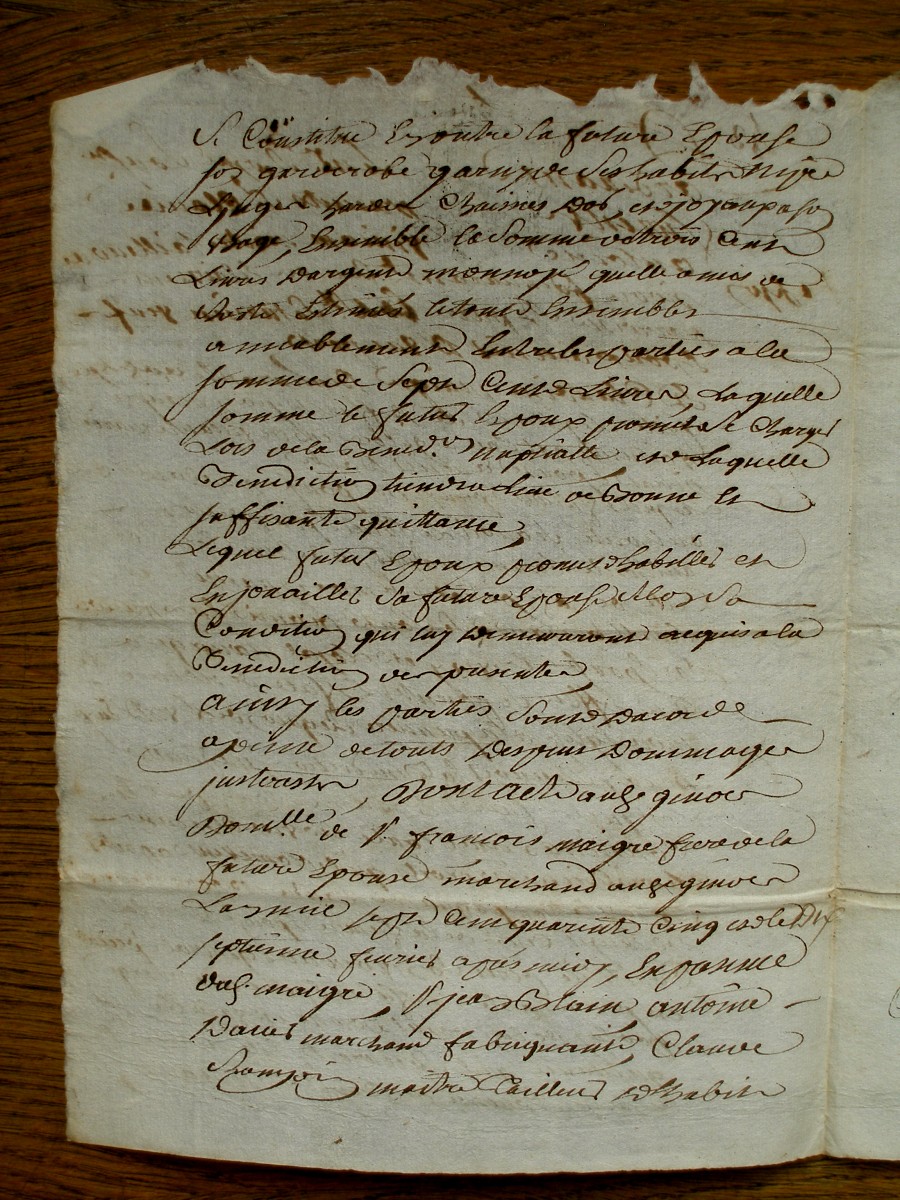 Se Constitue En outre la future Epouse
son garderobe garny de ses habits
Linges hardes Chaines d'or, et
usage, Ensemble la somme de trois Cent
Livres d'argent monnoye quelle a mis de
reste Estimés le tout Ensembles
amiablement Entre les parties a la
somme de Sept Cent Livres, Laquelle
somme le futur Epoux promet se Charger
Lors de la Bened.on nuptialle et de Laquelle
Benediction tiendra lieu de bonne Et
suffisante quittance,
Lequel futur Epoux promet d'habiller et
Enjouailler sa future Epouse selon sa
Condition qui luy demeureront acquis a la
Benediction des presentes
ainsy les parties sont d'acord
a peine de touts despens dommages
fait acte au
Domlle de Sr françois maigre frere de la
future Epouse marchand au
L'an mil sept Cent quarente Cinq et le Dix
septieme fevrier apres midy, En presence
dud. maigre, Sr jean Blain antoine
marchand fabriquant, Claude
maitre Tailleur d'habits